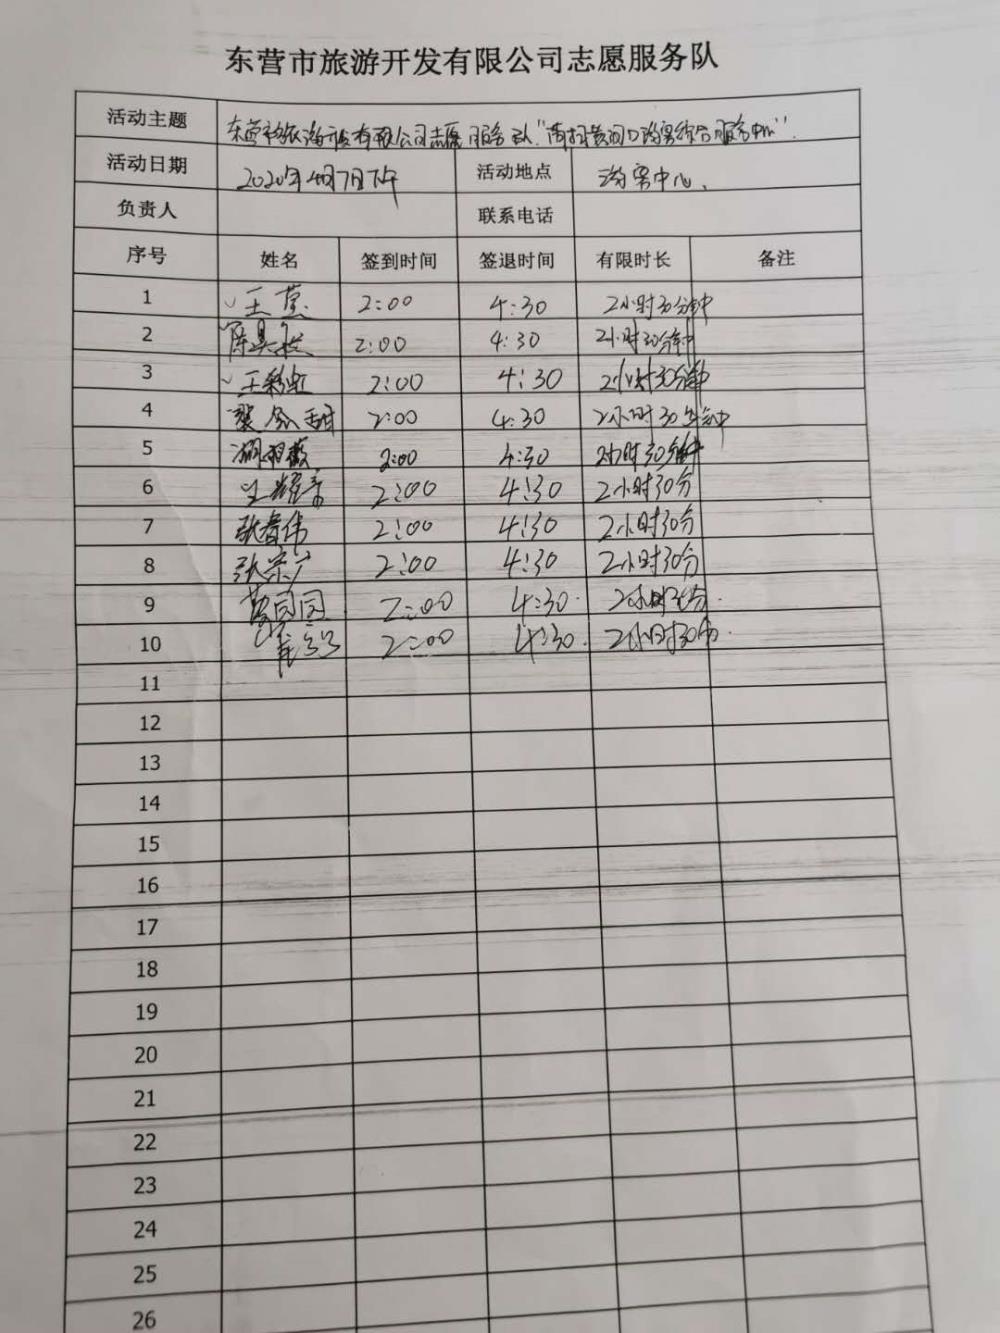 东营市旅游开发有限公司志愿服务队
活动主题 东营市旅游开发有限公司志愿服务队"黄河口游客综合服务中心".
活动日期 2020年4月7日下午 活动地点 游客中心.
负责人 联系电话
序号 姓名 签到时间 签退时间 有限时长 备注
1 王莹 2:00 4:30 2小时30分钟
2 陈 2:00 4:30 2小时30分钟
3 王彩虹 2:00 4:30 2小时30分钟
4 2:00 4:30 2小时30分钟
5 2:00 4:30 2小时30分钟
6 王耀 2:00 4:30 2小时30分
7 张春伟 2:00 4:30 2小时30分
8 张 2:00 4:30 2小时30分
9 园园 2:00 4:30. 2小时30分.
10 2:00 4:30. 2小时30分.
11
12
13
14
15
16
17
18
19
20
21
22
23
24
25
26